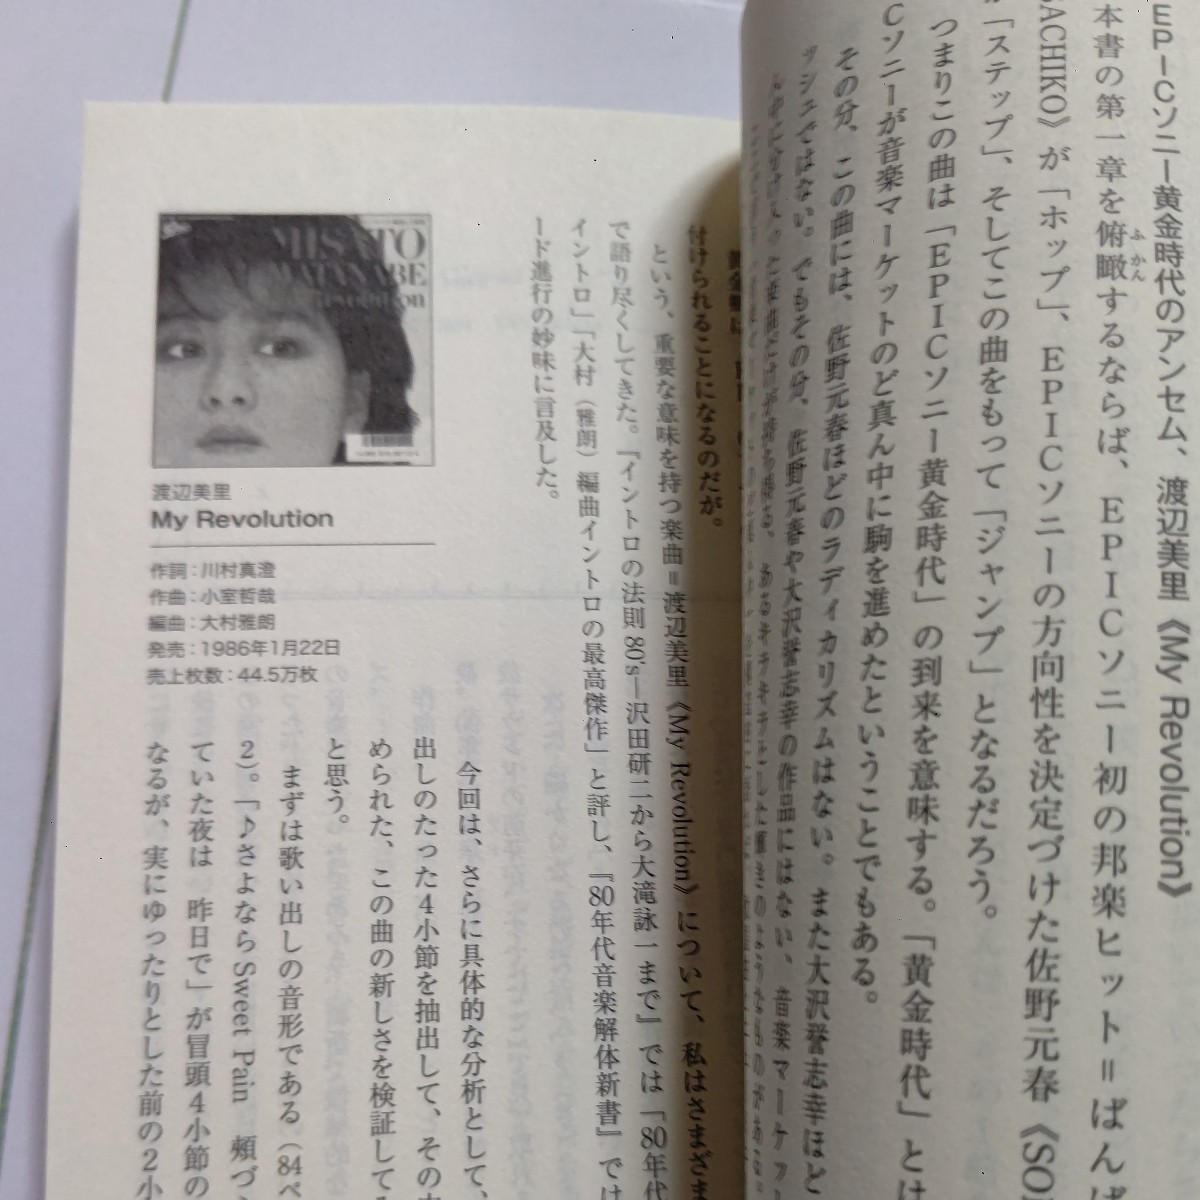 EPICソニー黄金時代のアンセム、渡辺美里《My Revolution》
本書の第一章を俯瞰するならば、EPICソニー初の邦楽ヒット＝ばんば
ふかん
SACHIKO》が「ホップ」、EPICソニーの方向性を決定づけた佐野元春《SO
が「ステップ」、そしてこの曲をもって「ジャンプ」となるだろう。
つまりこの曲は「EPICソニー黄金時代」の到来を意味する。「黄金時代」とは
Cソニーが音楽マーケットのど真ん中に駒を進めたということでもある。
その分、この曲には、佐野元春ほどのラディカリズムはない。また大沢誉志幸ほど
ッシュではない。でもその分、佐野元春や大沢誉志幸の作品にはない、音楽マーケッ
付けられることになるのだが。
という、重要な意味を持つ楽曲＝渡辺美里《My Revolution》について、私はさまざま
で語り尽くしてきた。『イントロの法則80's―沢田研二から大滝詠一まで』では「80年代
イントロ」「大村（雅朗）編曲イントロの最高傑作」と評し、『80年代音楽解体新書』では
ード進行の妙味に言及した。
MISATO
WATANABE
Revolution
渡辺美里
My Revolution
作詞：川村真澄
作曲：小室哲哉
編曲：大村雅朗
発売：1986年1月22日
売上枚数：44.5万枚
今回は、さらに具体的な分析として、
出しのたった4小節を抽出して、その中
められた、この曲の新しさを検証してみ
と思う。
まずは歌い出しの音形である（84ペ
2）。「♪さよなら Sweet Pain 頬づ
ていた夜は 昨日で」が冒頭4小節の
なるが、実にゆったりとした前の2小